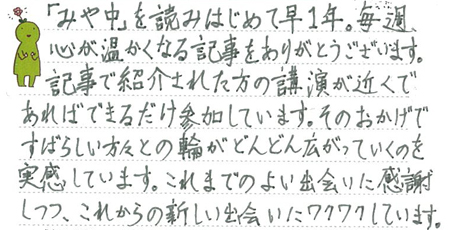 「みや中」を読みはじめて早1年。毎週、
心が温かくなる記事をありがとうございます。
記事で紹介された方の講演が近くで
あればできるだけ参加しています。そのおかげで
すばらしい方々との輪がどんどん広がっていくのを
実感しています。これまでのよい出会いに感謝
しつつ、これからの新しい出会いにワクワクしています。